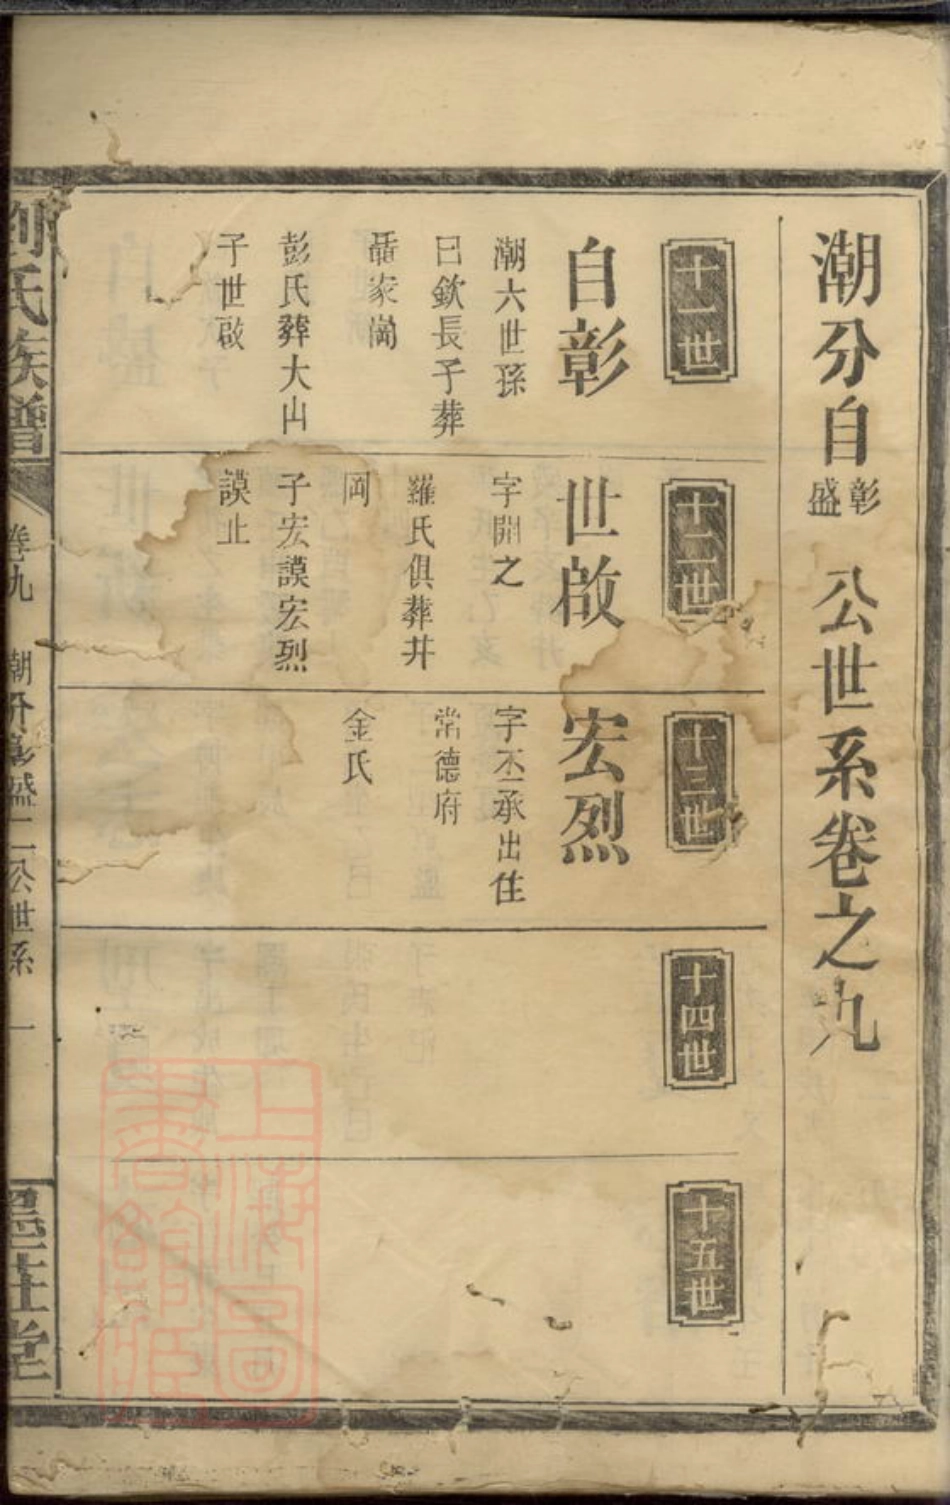 潮分自彰盛公世系卷之九
十一世
自彰
潮六世孫
曰欽長子葬
聶家崗
彭氏葬大山
子世啟
十二世
世啟
字開之
羅氏俱葬井
岡
子宏謨宏烈
謨止
十三世
宏烈
字丕承出住
常德府
金氏
十四世
十五世
劉氏族譜
卷九
潮分彰盛二公世系
一
堂
上海圖書館藏